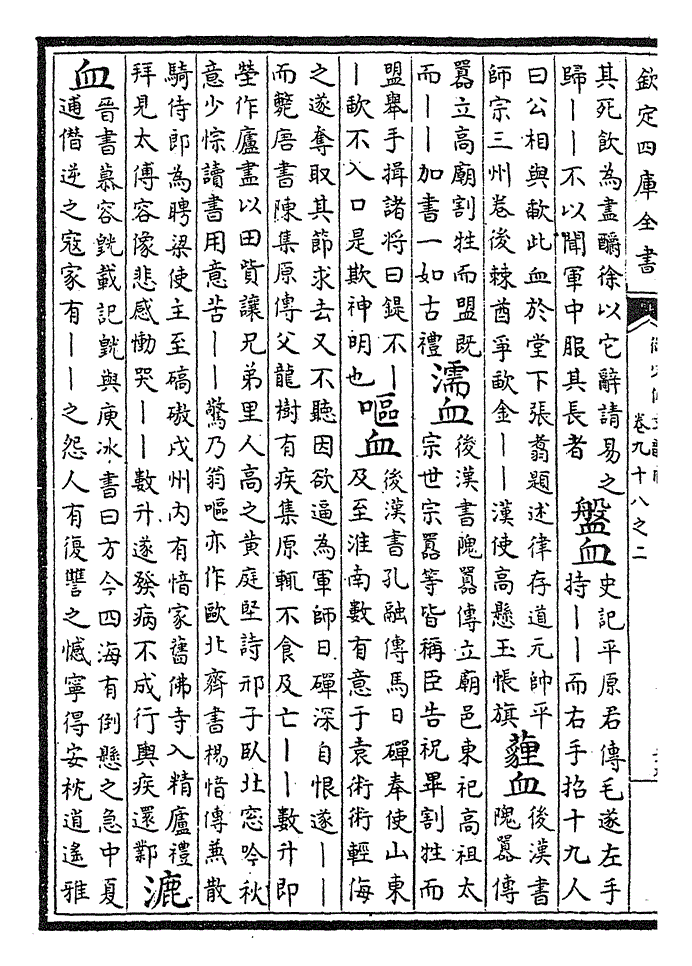 欽定四庫全書
卷九十八之二
其死飲為盡酹徐以它辭請易之
歸丨丨不以聞軍中服其長者
盤血
史記平原君傳毛遂左手
持丨丨而右手招十九人
曰公相與歃此血於堂下張翥題述律存道元帥平
師宗三州卷後棘酋爭歃金丨丨漢使高懸玉帳旗
虀血
後漢書
隗囂傳
囂立高廟割牲而盟既
而丨丨加書一如古禮
濡血
後漢書隗囂傳立廟邑東祀高祖太
宗世宗囂等皆稱臣告祝畢割牲而
盟舉手揖諸將曰鍉不丨
丨歃不入口是欺神明也
嘔血
後漢書孔融傳馬日磾奉使山東
及至淮南數有意于袁術術輕侮
之遂奪取其節求去又不聽因欲逼為軍師日磾深自恨遂丨丨
而斃唐書陳集原傳父龍樹有疾集原輒不食及亡丨丨數升即
塋作廬盡以田貲讓兄弟里人高之黃庭堅詩邢子臥北窓吟秋
意少悰讀書用意苦丨丨驚乃翁嘔亦作歐北齊書楊愔傳兼散
騎侍郎為聘梁使主至碻磝戍州內有愔家舊佛寺入精廬禮
拜見太傅容像悲感慟哭丨丨數升遂發病不成行輿疾還鄴
漉
血
晉書慕容皝載記皝與庾冰書曰方今四海有倒懸之急中夏
逋僭逆之寇家有丨丨之怨人有復讐之憾寧得安枕逍遙雅